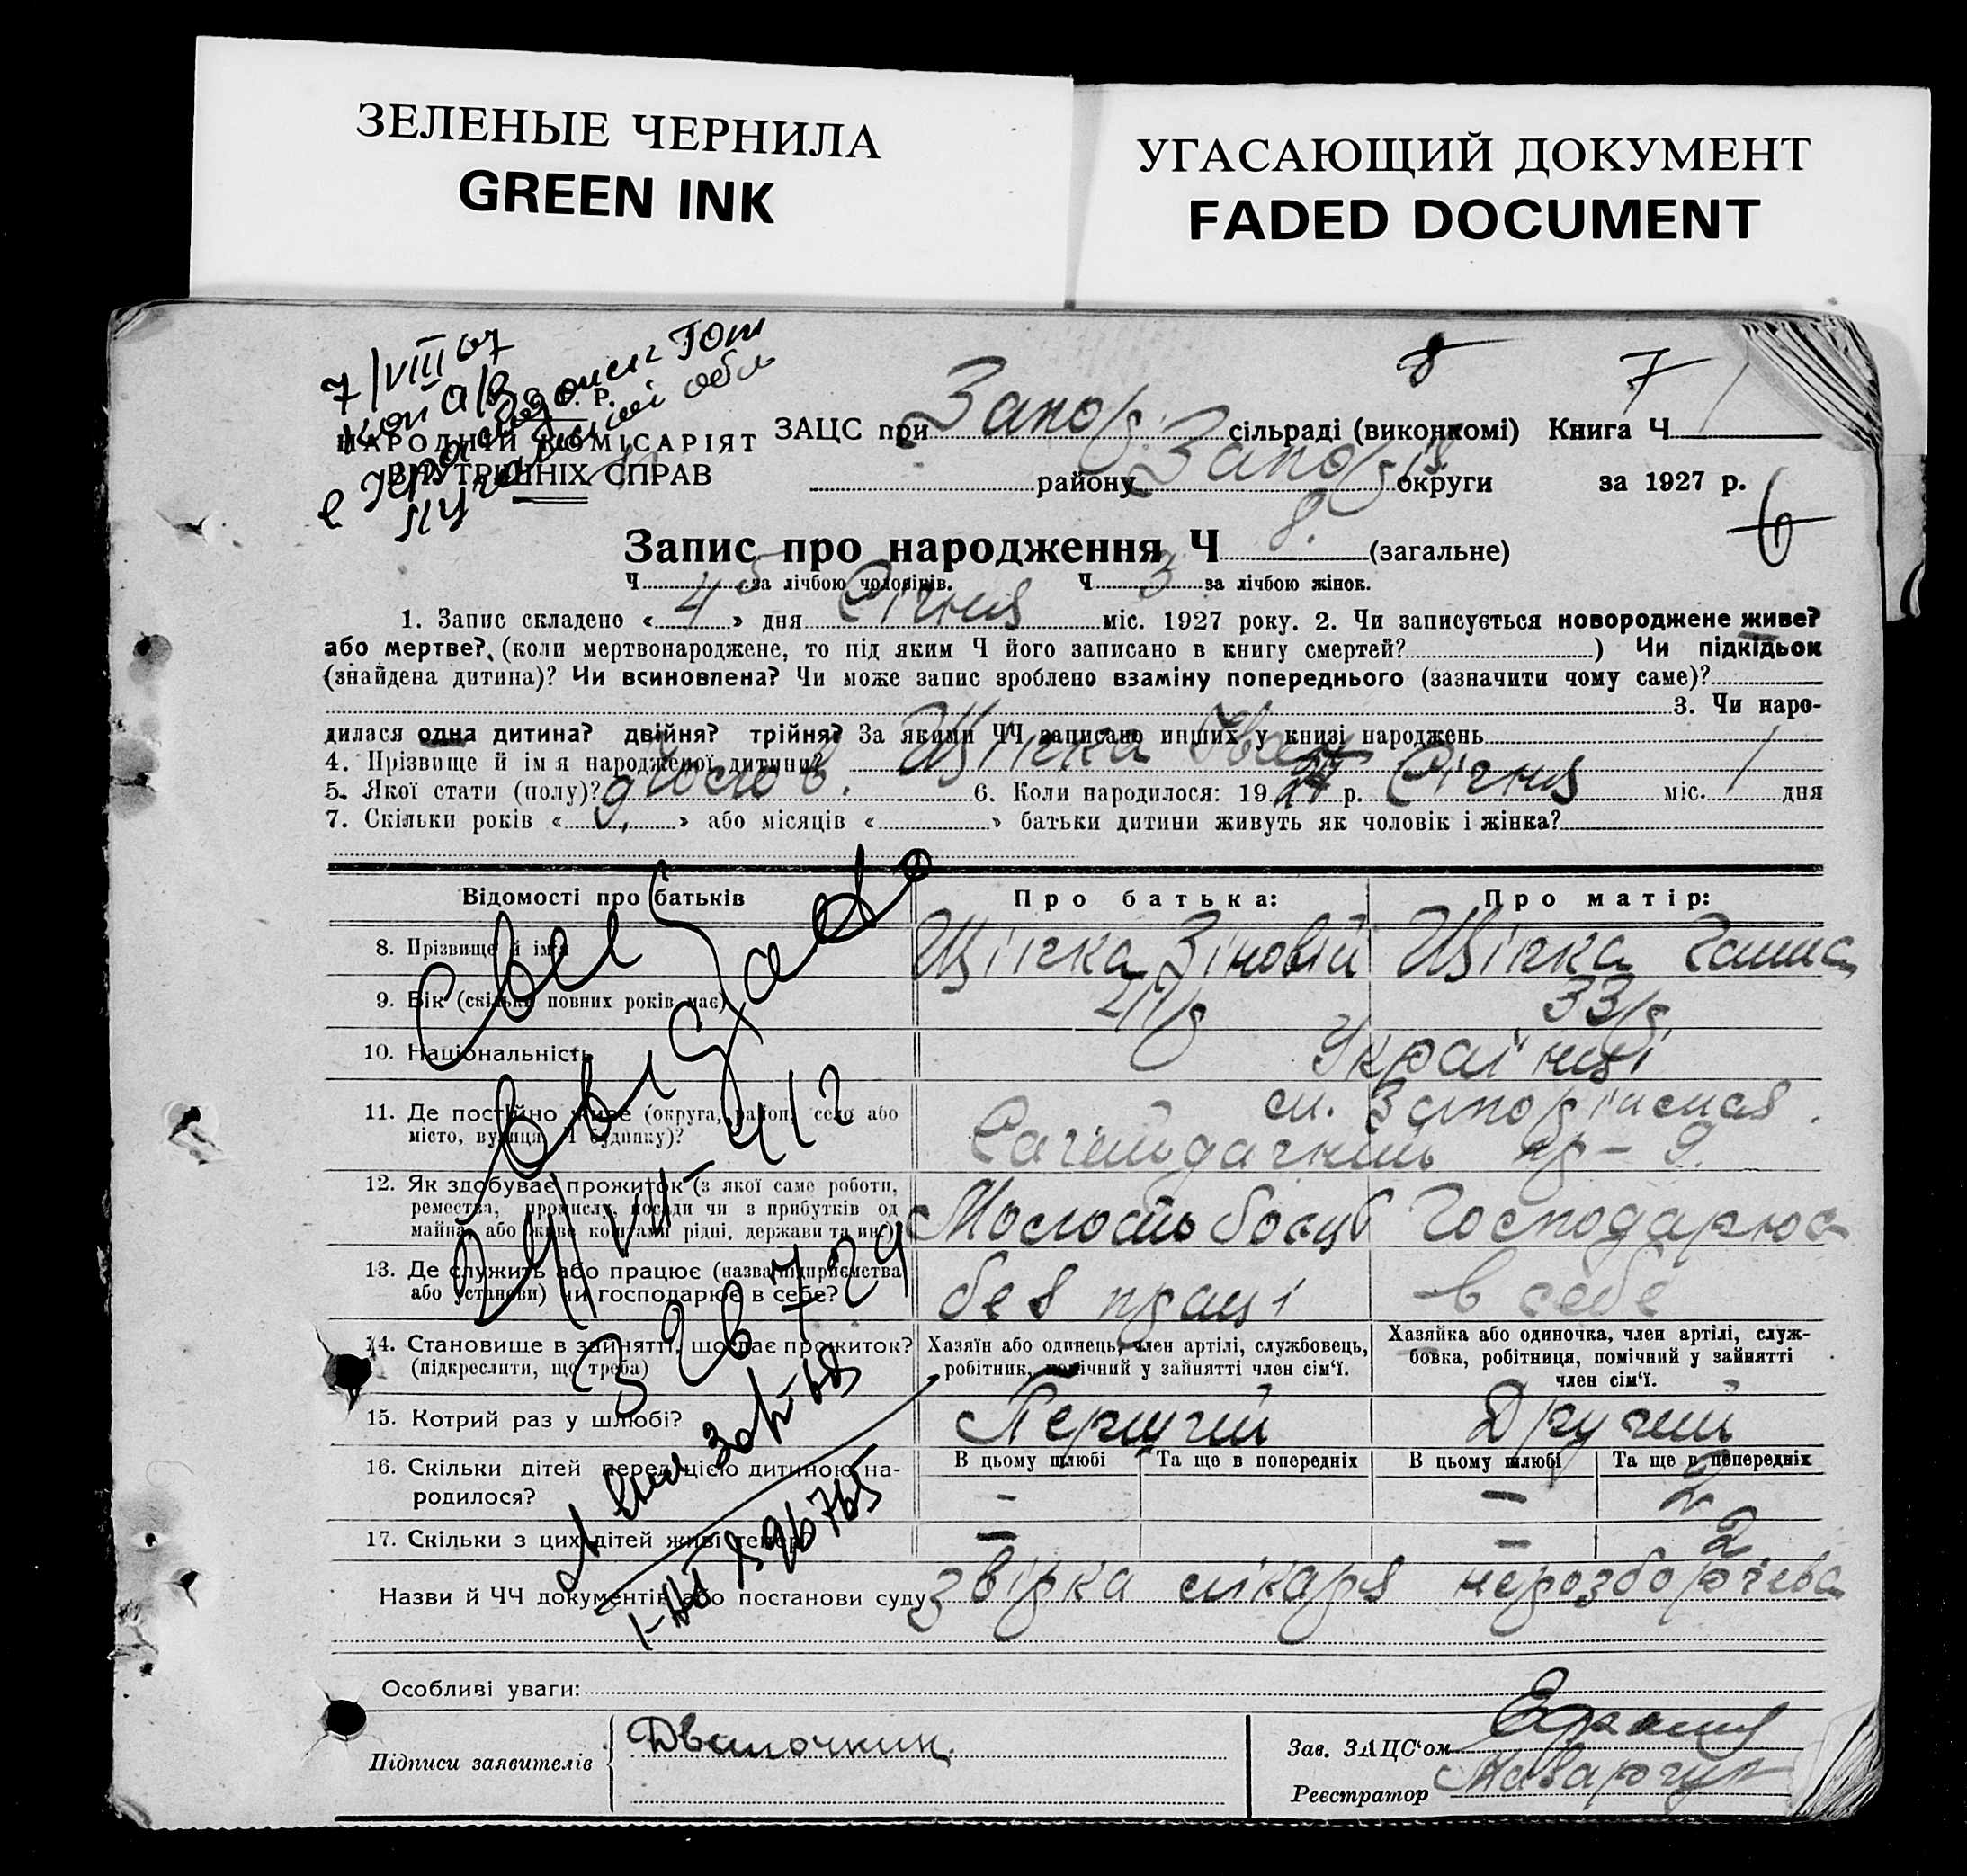 ЗЕЛЕНЫЕ ЧЕРНИЛА
GREEN INK
УГАСАЮЩИЙ ДОКУМЕНТ
FADED DOCUMENT
7/VIII 67
НАРОДНІЙ КОМІСАРІЯТ
ВНУТРІШНІХ СПРАВ
8 7
ЗАЦС при Запор. сільраді (виконкомі) Книга Ч
району Запор округи за 1927 р.
6
Запис про народження Ч 8. (загальне)
Ч 5 за лічбою чоловіків. Ч 3 за лічбою жінок.
1. Запис складено « 4 » дня Січня міс. 1927 року. 2. Чи записується новороджене живе?
або мертве? (коли мертвонароджене, то під яким Ч його записано в книгу смертей? ) Чи підкідьок
(знайдена дитина)? Чи всиновлена? Чи може запис зроблено взаміну попереднього (зазначити чому саме)?
3. Чи наро-
дилася одна дитина? двійня? трійня? За якими ЧЧ записано инших у книзі народжень
4. Прізвище й ім'я народженої дитини? Щіпка Іван
5. Якої стати (полу)? Чолов. 6. Коли народилося: 19 27 р. Січня міс. 1 дня
7. Скільки років « 9. » або місяців « » батьки дитини живуть як чоловік і жінка?
Відомості про батьків Про батька: Про матір:
8. Прізвище й ім'я Щіпка Зіновій Щіпка Ганна
9. Вік (скільки повних років має) 33 р.
10. Національність Українці
11. Де постійно живе (округа, район, село або
місто, вулиця й будинку)? м. Запоріжжя
12. Як здобуває прожиток (з якої саме роботи,
ремества, промислу, посади чи з прибутків од
майна, або живе коштами рідні, держави та ин.) Господарює
13. Де служить або працює (назва підприємства
або установи) чи господарює в себе? без праці в себе
14. Становище в зайнятті, що дає прожиток?
(підкреслити, що треба)
Хазяїн або одинець, член артілі, службовець,
робітник, помічний у зайнятті член сім'ї.
Хазяйка або одиночка, член артілі, служ-
бовка, робітниця, помічний у зайнятті
член сім'ї.
15. Котрий раз у шлюбі? Перший Другий
16. Скільки дітей перед цією дитиною на-
родилося?
В цьому шлюбі Та ще в попередніх В цьому шлюбі Та ще в попередніх
– – 2
17. Скільки з цих дітей живі тепер? – – 2
Назви й ЧЧ документів або постанови суду
Особливі уваги:
Підписи заявителів
Зав. ЗАЦС'ом
Реєстратор